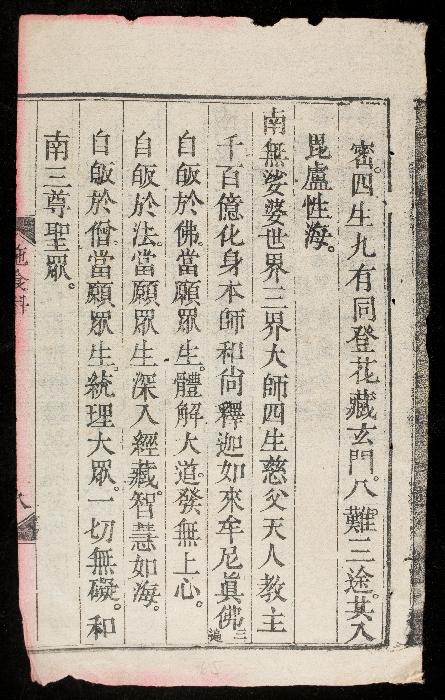 密。四生九有同登花藏玄門。八難三途。共入
毘盧性海。
南無娑婆世界三界大師四生慈父天人教主
千百億化身本師和尚釋迦如來牟尼眞佛三遍
自皈於佛。當願眾生。體解大道。發無上心。
自皈於法。當願眾生深入經藏。智慧如海。
自皈於僧。當願眾生。統理大眾。一切無礙。和
南三尊聖眾。
施食科
八